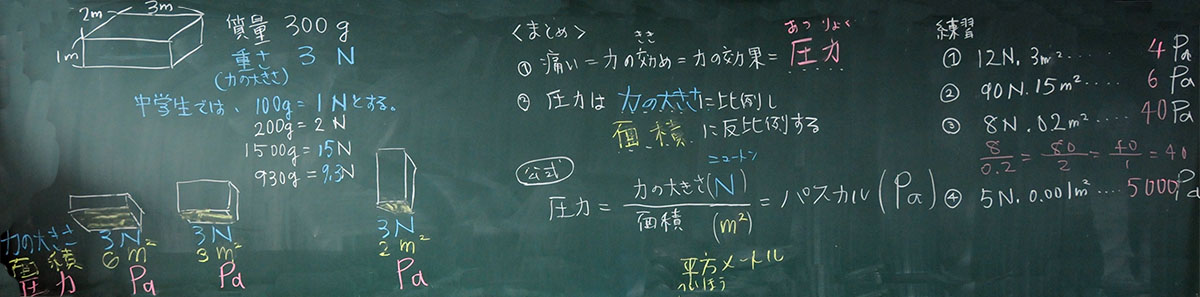 2m 3m
1m
質量 300g
重さ 3 N
(力の大きさ)
中学生では、100g=1Nとする。
200g=2N
1500g=15N
930g=9.3N
力の大きさ 3N 3N 3N
面積 6m² 3m² 2m²
圧力 Pa Pa Pa
<まとめ>
きき あつりょく
① 痛い=力の効め=力の効果=圧力
② 圧力は 力の大きさに比例し
面積 に反比例する
公式
ニュートン
圧力= 力の大きさ(N) / 面積 (m²) =パスカル(Pa)
平方メートル
へいほう
練習
① 12N. 3m²..... 4Pa
② 90N.15m²... 6Pa
③ 8N.02m² 40Pa
8/0.2=80/2=40/1=40
④ 5N.0.001m².... 5000Pa